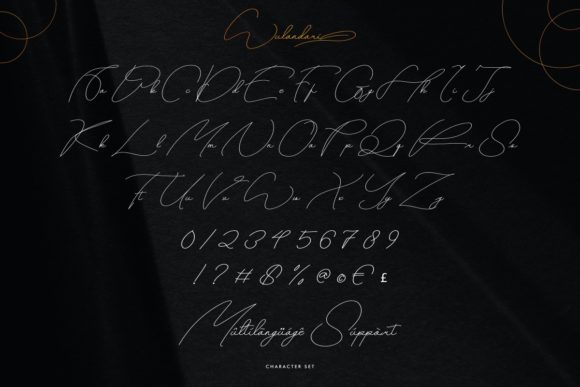 Wulandari
Aa Bb Cc Dd Ee Ff Gg Hh Ii Jj
Kk Ll Mm Nn Oo Pp Qq Rr Ss
Tt Uu Vv Ww Xx Yy Zz
0 1 2 3 4 5 6 7 8 9
! ? # $ % @ © € £
Mûltilángüágê Súppòrt
CHARACTER SET